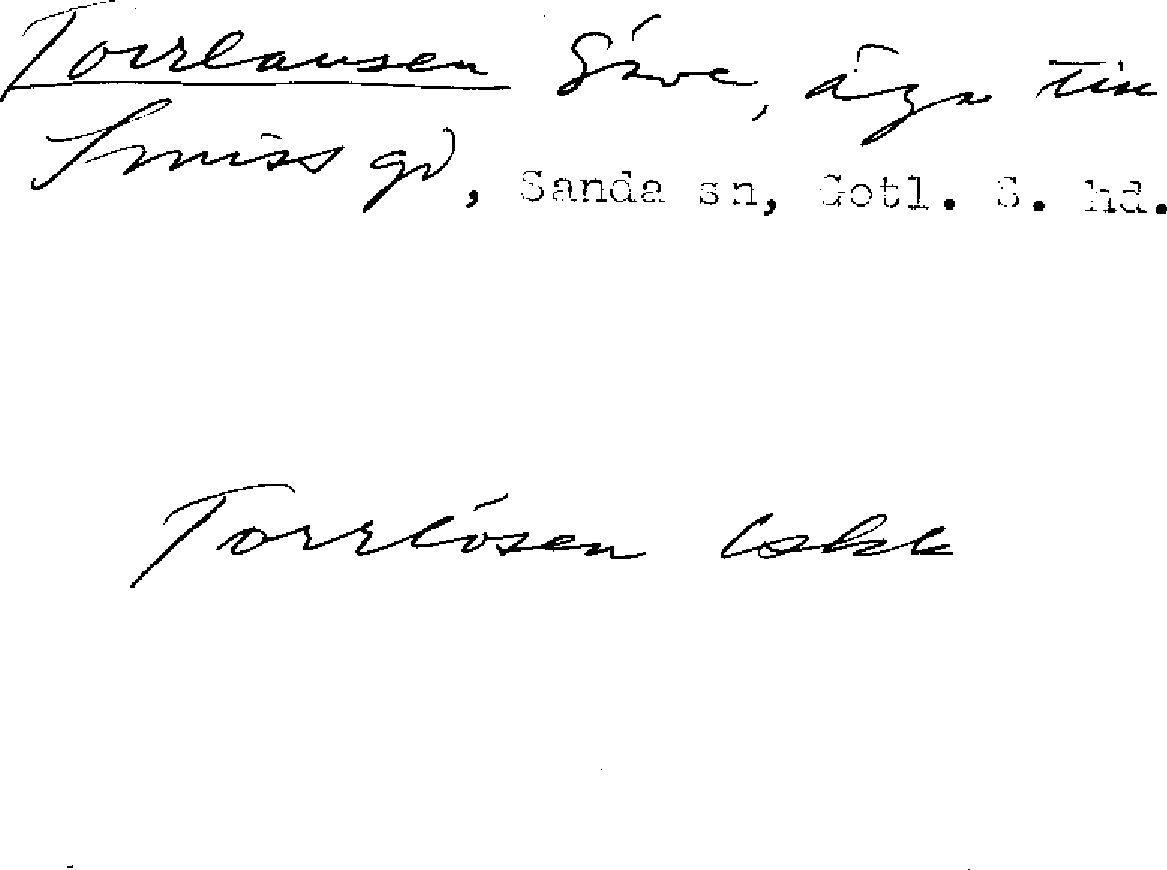 Torrlausen Säve, äga till
Smiss gd, Sanda sn, Gotl. S. hd.
Torrlösen